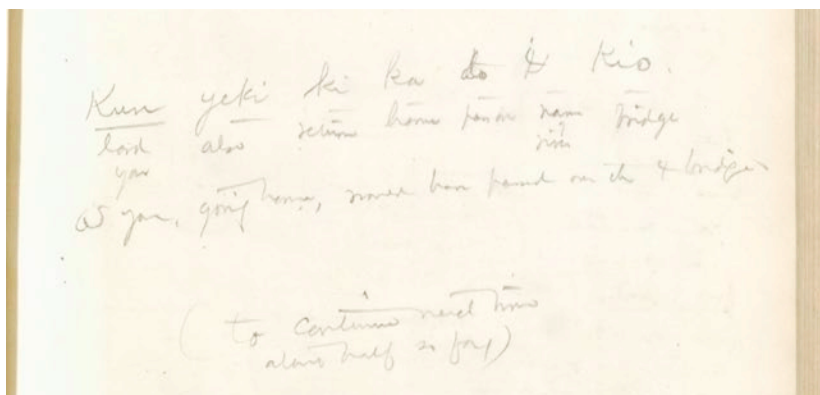 Kun yeki ki ka to I Kio.
lord also return home pass over name bridge
you river
as you, going home, moved have passed over the I bridge
(to continue next time
about half so far)